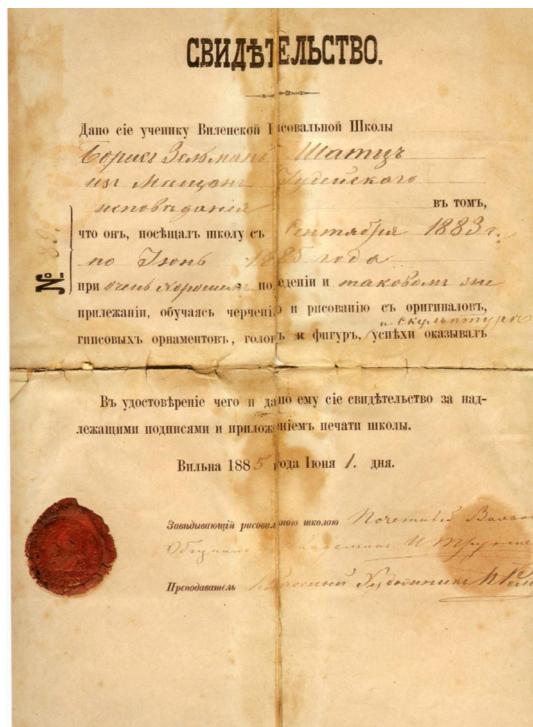 СВИДѢТЕЛЬСТВО.
Дано сіе ученику Виленской Рисовальной Школы
Борисъ Зельманъ Шатцъ
изъ Мѣщанъ Іудейскаго
исповѣданія въ томъ,
что онъ, посѣщалъ школу съ Сентября 1883 г.
по Іюнь 1885 года
№
при очень хорошемъ поведеніи и таковомъ же
прилежаніи, обучаясь черченію и рисованію съ оригиналовъ,
и скульптурѣ
гипсовыхъ орнаментовъ, головъ и фигуръ, успѣхи оказывалъ
Въ удостовѣреніе чего и дано ему сіе свидѣтельство за над-
лежащими подписями и приложеніемъ печати школы.
Вильна 1885 года Іюня 1. дня.
Завѣдывающій рисовальною школою Почетный
Академикъ И Трутне
Преподаватель Классный Художникъ